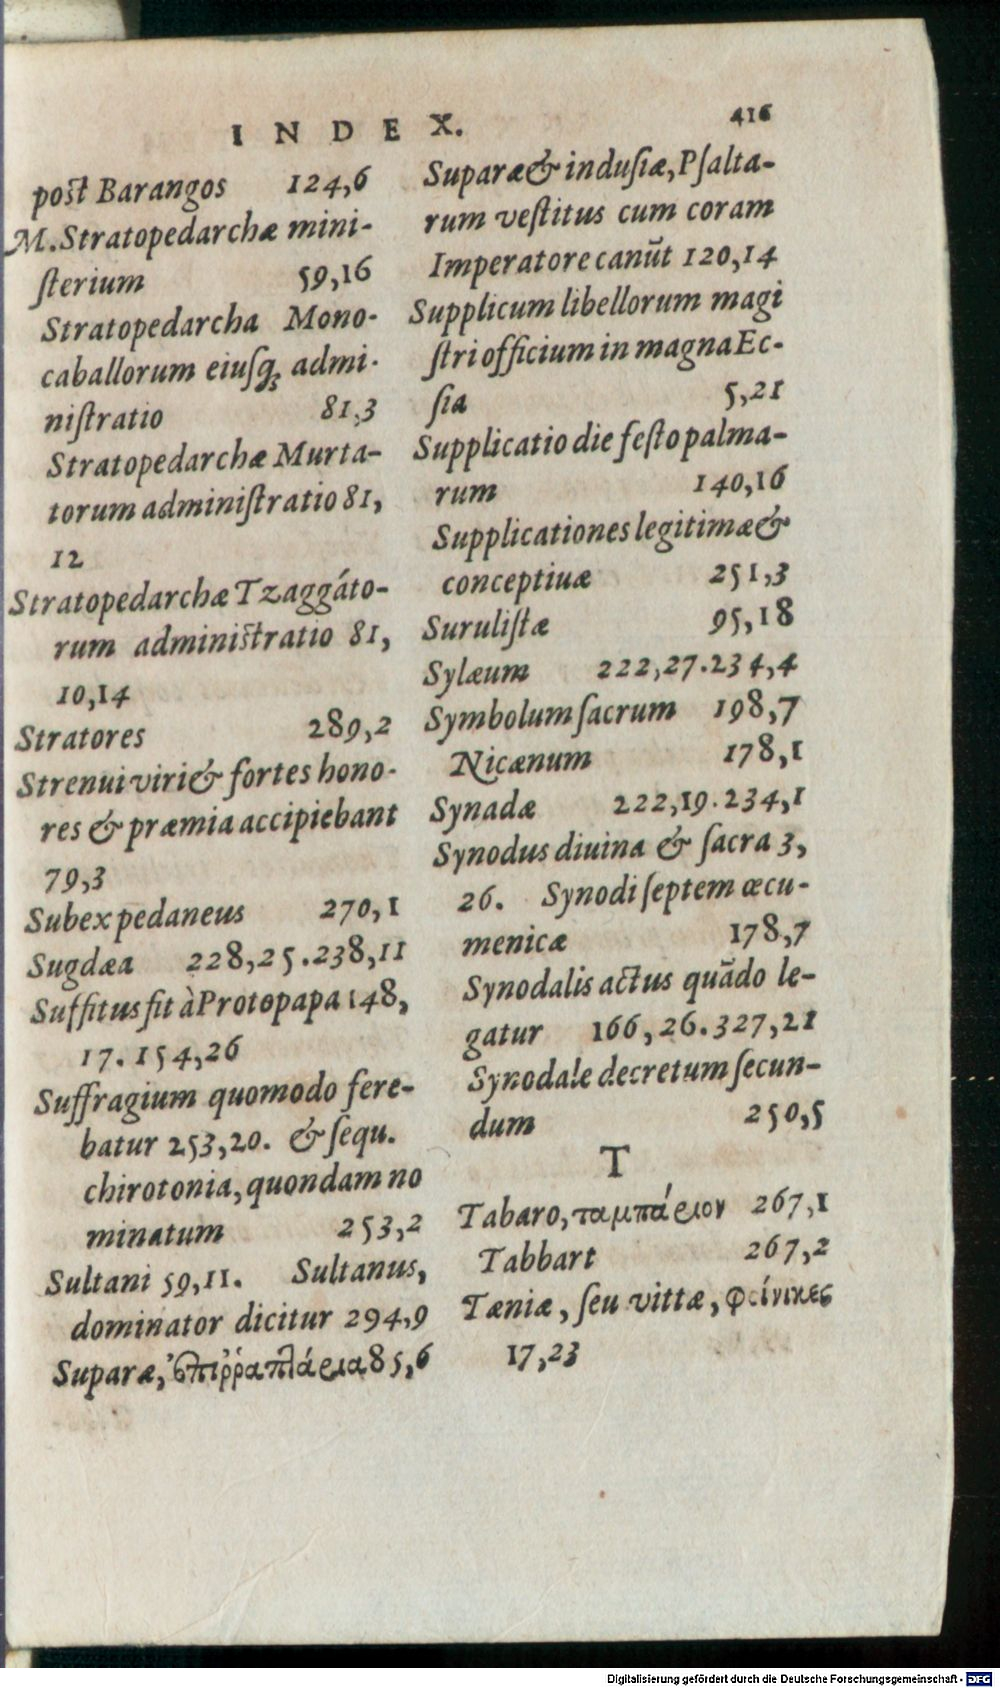 INDEX. 416
post Barangos 124,6
M. Stratopedarchæ mini-
ſterium 59,16
Stratopedarcha Mono-
caballorum eiuſq; admi-
niſtratio 81,3
Stratopedarchæ Murta-
torum adminiſtratio 81,
12
Stratopedarchæ Tzaggáto-
rum adminiſtratio 81,
10,14
Stratores 289,2
Strenui viri & fortes hono-
res & præmia accipiebant
79,3
Subex pedaneus 270,1
Sugdæa 228,25.238,11
Suffitus fit à Protopapa 148,
17.154,26
Suffragium quomodo fere-
batur 253,20. & ſequ.
chirotonia, quondam no
minatum 253,2
Sultani 59,11. Sultanus,
dominator dicitur 294,9
Suparæ, 85,6
Suparæ & induſiæ, Pſalta-
rum veſtitus cum coram
Imperatore canūt 120,14
Supplicum libellorum magi
ſtri officium in magna Ec-
ſia 5,21
Supplicatio die feſto palma-
rum 140,16
Supplicationes legitimæ &
conceptiuæ 251,3
Suruliſtæ 95,18
Sylæum 222,27.234,4
Symbolum ſacrum 198,7
Nicænum 178,1
Synadæ 222,19.234,1
Synodus diuina & ſacra 3,
26. Synodi ſeptem œcu-
menicæ 178,7
Synodalis actus quādo le-
gatur 166,26.327,21
Synodale decretum ſecun-
dum 250,5
T
Tabaro, ταμπάριον 267,1
Tabbart 267,2
Tæniæ, ſeu vittæ, φοίνικες
17,23
Digitalisierung gefördert durch die Deutsche Forschungsgemeinschaft - DFG